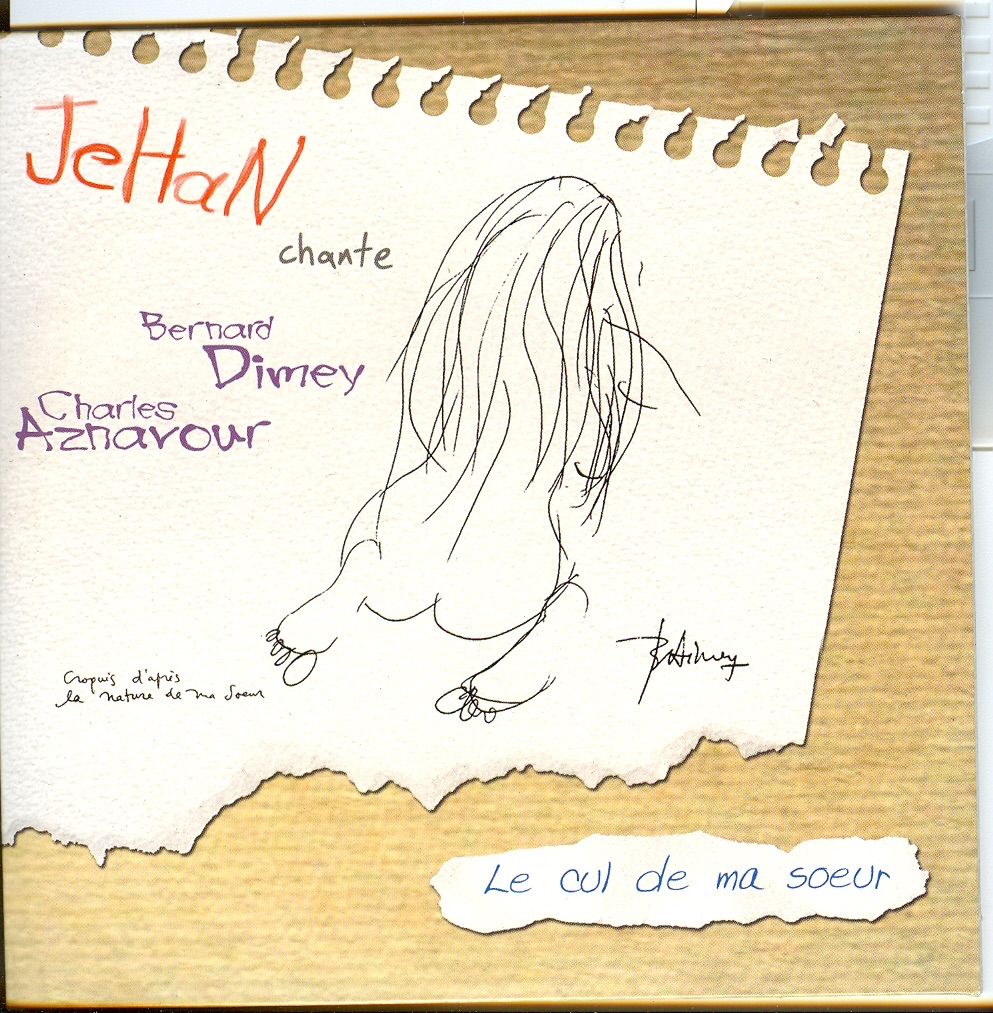 JeHaN
chante
Bernard
Dimey
Charles
Aznavour
Croquis d'après
la nature de ma Soeur
BDimey
Le cul de ma soeur